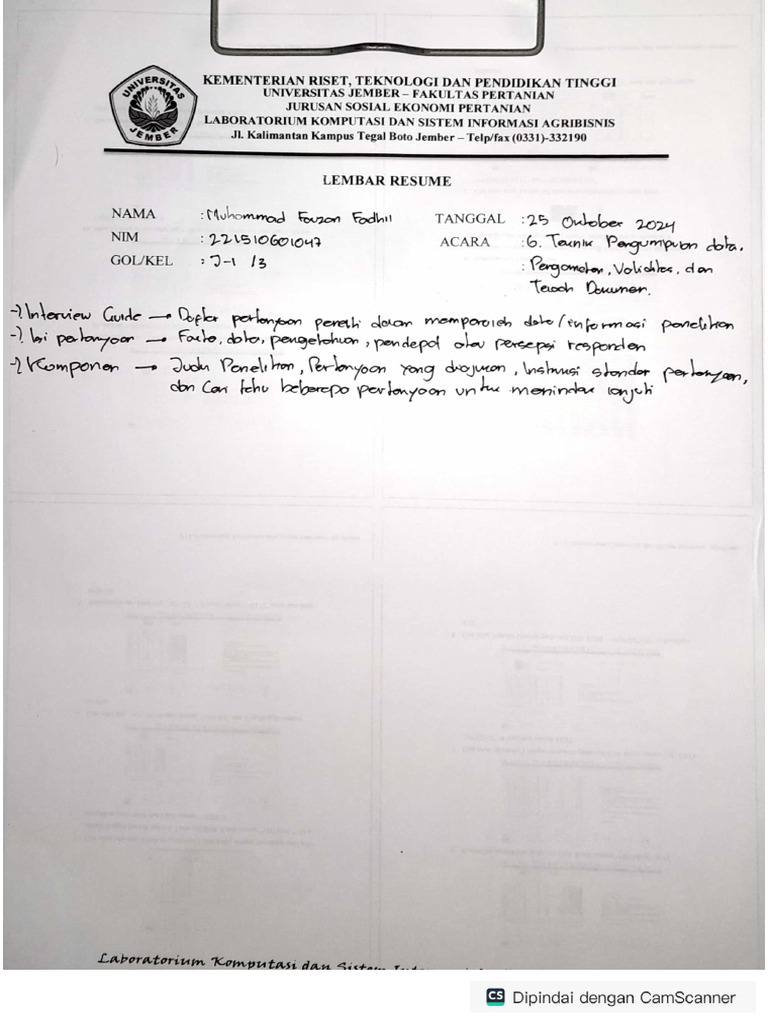 UNIVERSITAS JEMBER
KEMENTERIAN RISET, TEKNOLOGI DAN PENDIDIKAN TINGGI
UNIVERSITAS JEMBER – FAKULTAS PERTANIAN
JURUSAN SOSIAL EKONOMI PERTANIAN
LABORATORIUM KOMPUTASI DAN SISTEM INFORMASI AGRIBISNIS
Jl. Kalimantan Kampus Tegal Boto Jember – Telp/fax (0331)-332190
LEMBAR RESUME
NAMA : Muhammad Fauzan Fadhil TANGGAL : 25 Oktober 2024
NIM : 221510601047 ACARA : 6. Teknik Pengumpulan data,
GOL/KEL : J-1 /3 : Pengamatan, Validitas, dan
Telaah Dokumen.
-) Interview Guide → Daftar pertanyaan peneliti dalam memperoleh data/informasi penelitian
-) Isi pertanyaan → Fakta, data, pengetahuan, pendapat atau persepsi responden
-) Komponen → Judul Penelitian, Pertanyaan yang diajukan, Instruksi standar pertanyaan,
dan Cari tahu beberapa pertanyaan untuk menindak lanjuti
Laboratorium Komputasi dan Sistem
CS Dipindai dengan CamScanner